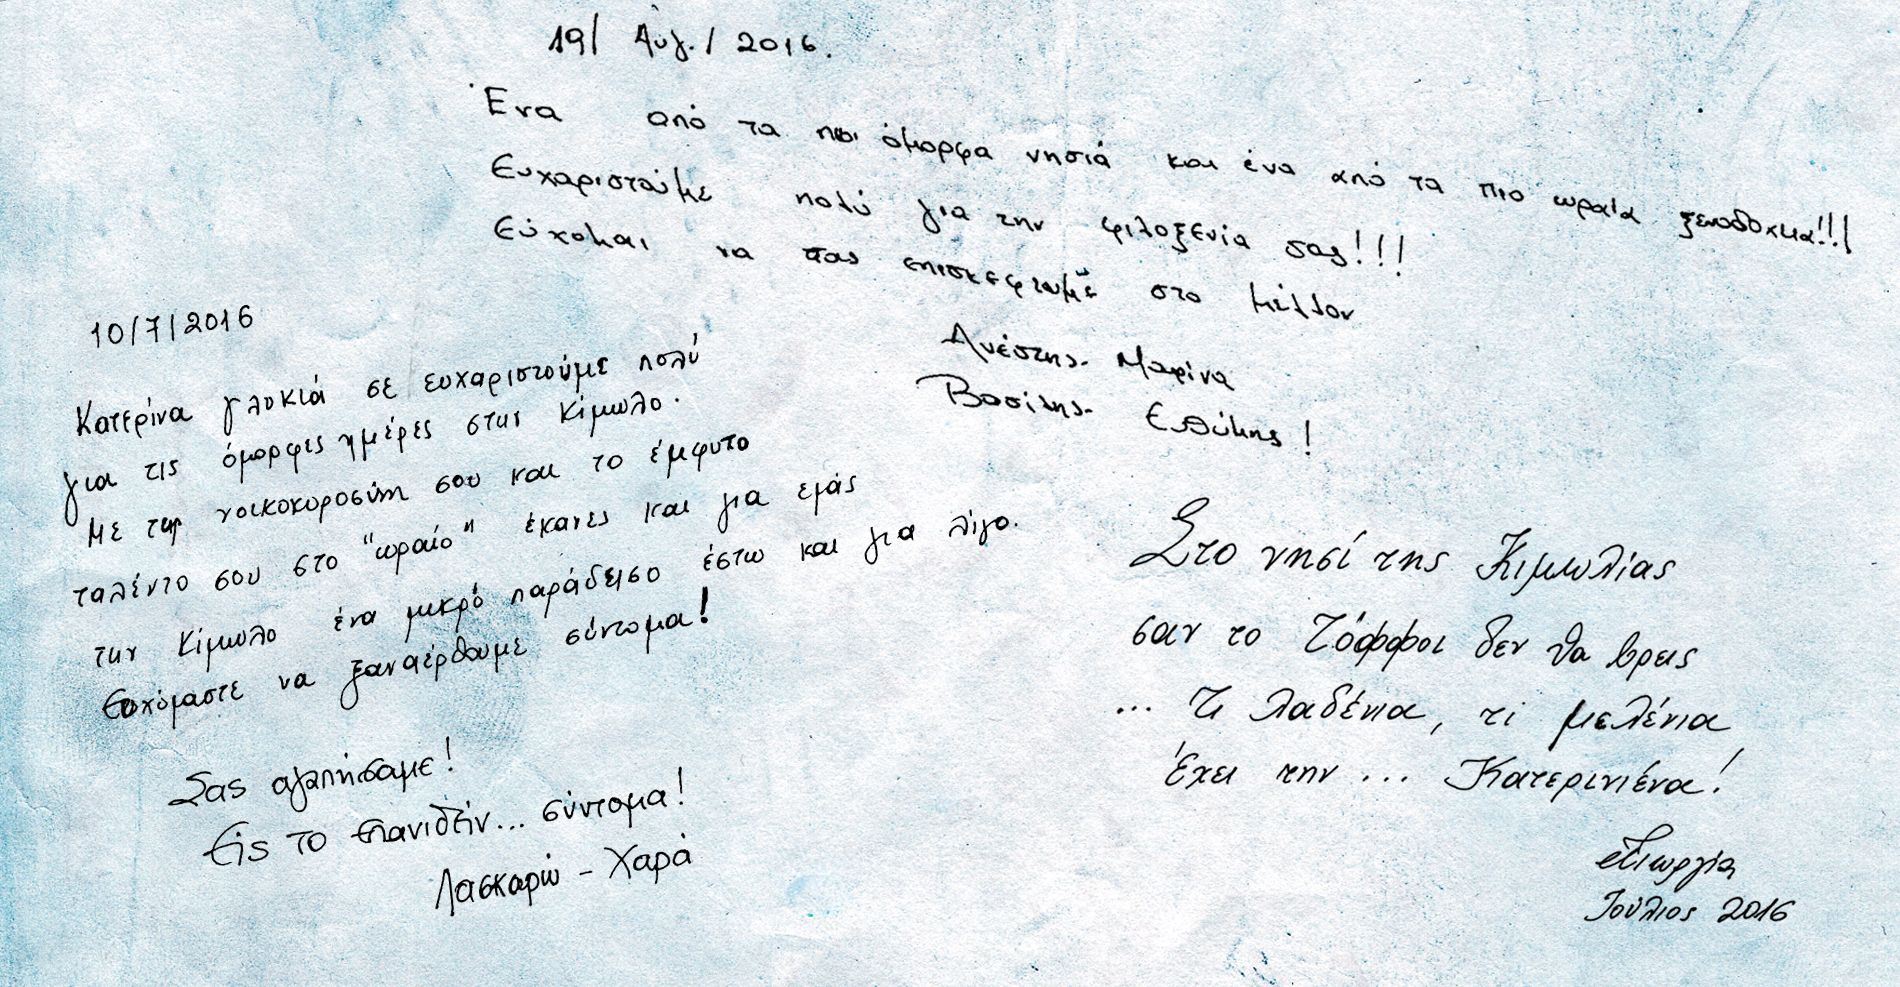 19/ Αυγ. / 2016.
Ένα από τα πιο όμορφα νησιά και ένα από τα πιο ωραία ξενοδοχεια!!!
Ευχαριστούμε πολύ για την φιλοξενία σας!!!
Εύχομαι να σας επισκεφτουμε στο μέλλον
Ανέστης - Μαρίνα
Βασίλης - Ευθύμης!
10/7/2016
Κατερίνα γλυκιά σε ευχαριστούμε πολύ
για τις όμορφες ημέρες στην Κίμωλο.
Με την νοικοκυροσύνη σου και το έμφυτο
ταλέντο σου στο "ωραίο" έκανες και για εμάς
την Κίμωλο ένα μικρό παράδεισο έστω και για λίγο.
Ευχόμαστε να ξαναέρθουμε σύντομα!
Σας αγαπήσαμε!
Εις το επανιδείν... σύντομα!
Λασκαρώ - Χαρά
Στο νησί της Κιμωλίας
σαν το Τόφφοι δεν θα βρεις
... τι λαδένια, τι μελένια
έχει την ... Κατερινιένα!
Γιωργία
Ιούλιος 2016